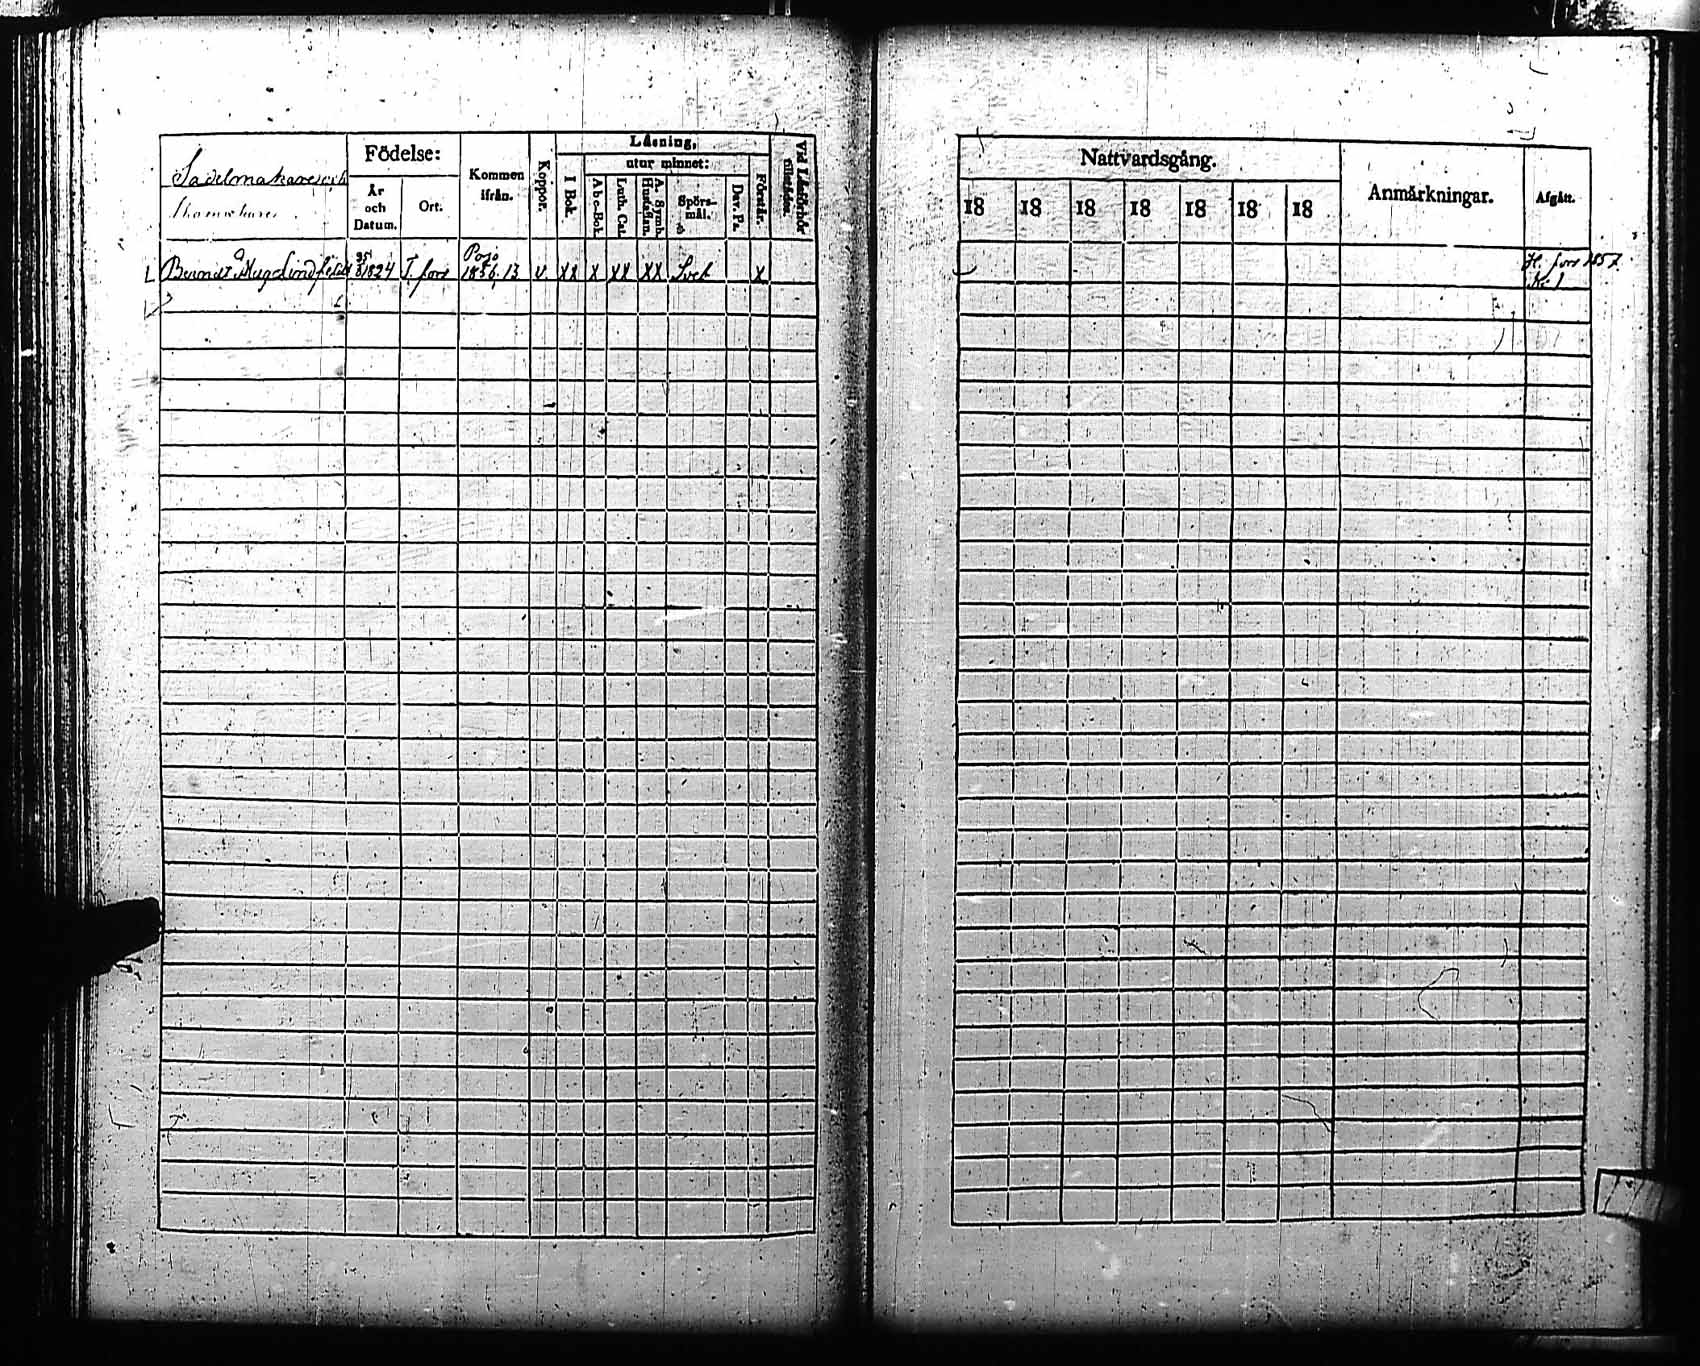 Sadelmakare och
Födelse:
År
och
Datum.
Ort.
Kommen
ifrån.
Koppor.
Läsning,
I Bok.
utur minnet:
Abc-Bok.
Luth. Cat.
A. Symb.
Hustaflan.
Spörs-
mål.
Dav. Ps.
Förstår.
Vid Läsförhör
tillstädes.
L Berndt Aug Lind 1824 T. fors Pojo 1856, 13 v. XX X XX XX Svet X
Nattvardsgång.
18 18 18 18 18 18 18
Anmärkningar.
Afgått.
H. fors 1857